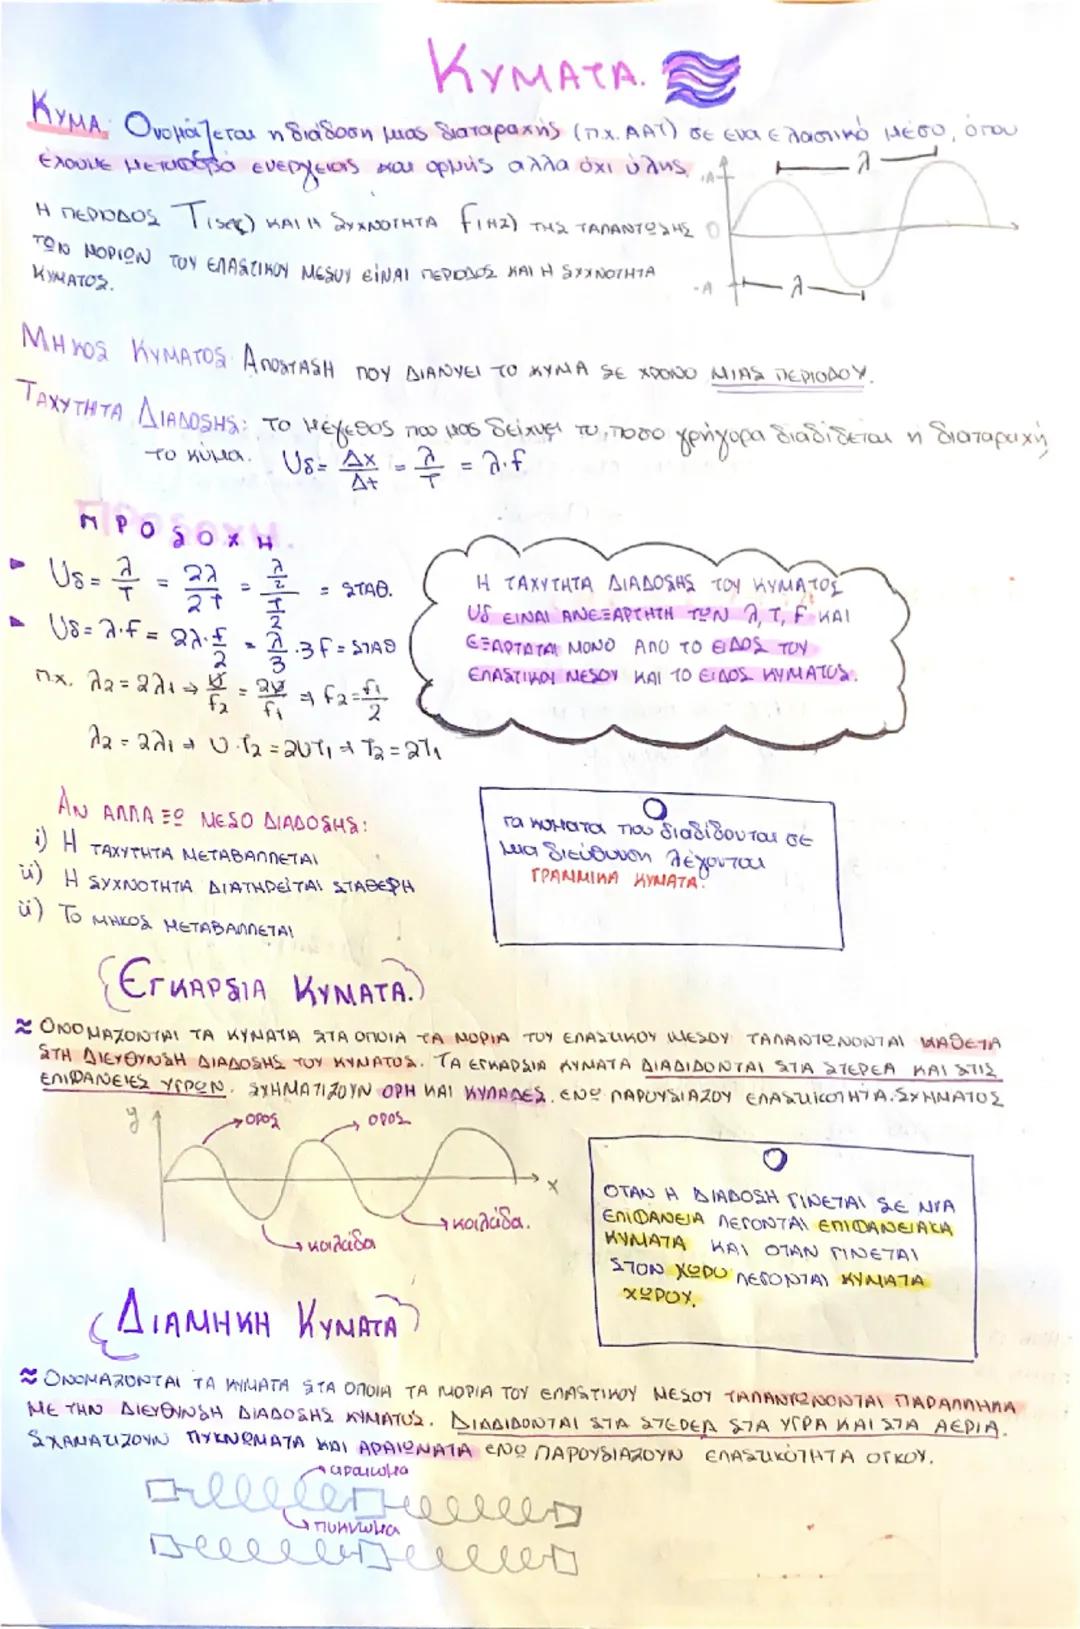 ΚΥΜΑΤΑ.
ΚΥΜΑ: Ονομάζεται η διάδοση μιας διαταραχής (π.χ. ΑΑΤ) σε ενα ελαστικό μέσο, όπου
έχουμε μεταφορά ενέργειας και ορμής αλλα όχι ύλης.
Η ΠΕΡΙΟΔΟΣ T(sec) ΚΑΙ Η ΣΥΧΝΟΤΗΤΑ f(Hz) ΤΗΣ ΤΑΛΑΝΤΩΣΗΣ
ΤΩΝ ΜΟΡΙΩΝ ΤΟΥ ΕΛΑΣΤΙΚΟΥ ΜΕΣΟΥ ΕΙΝΑΙ ΠΕΡΙΟΔΟΣ ΚΑΙ Η ΣΥΧΝΟΤΗΤΑ
ΚΥΜΑΤΟΣ.
A
λ
0
-A
λ
ΜΗΚΟΣ ΚΥΜΑΤΟΣ: ΑΠΟΣΤΑΣΗ ΠΟΥ ΔΙΑΝΥΕΙ ΤΟ ΚΥΜΑ ΣΕ ΧΡΟΝΟ ΜΙΑΣ ΠΕΡΙΟΔΟΥ.
ΤΑΧΥΤΗΤΑ ΔΙΑΔΟΣΗΣ: το μέγεθος που μας δείχνει το πόσο γρήγορα διαδίδεται η διαταραχή,
το κύμα. Uδ = Δx/Δt = λ/T = λ·f
ΠΡΟΣΟΧΗ.
Uδ = λ/T = 2λ/2T = (λ/2)/(T/2) = ΣΤΑΘ.
Uδ = λ·f = 2λ·f/2 = λ/3·3f = ΣΤΑΘ
πχ. λ2 = 2λ1 → U/f2 = 2U/f1 → f2 = f1/2
λ2 = 2λ1 → U·T2 = 2UT1 → T2 = 2T1
Η ΤΑΧΥΤΗΤΑ ΔΙΑΔΟΣΗΣ ΤΟΥ ΚΥΜΑΤΟΣ
Uδ ΕΙΝΑΙ ΑΝΕΞΑΡΤΗΤΗ ΤΩΝ λ, T, F ΚΑΙ
ΕΞΑΡΤΑΤΑΙ ΜΟΝΟ ΑΠΟ ΤΟ ΕΙΔΟΣ ΤΟΥ
ΕΛΑΣΤΙΚΟΥ ΜΕΣΟΥ ΚΑΙ ΤΟ ΕΙΔΟΣ ΚΥΜΑΤΟΣ.
ΑΝ ΑΛΛΑΞΩ ΜΕΣΟ ΔΙΑΔΟΣΗΣ:
i) Η ΤΑΧΥΤΗΤΑ ΜΕΤΑΒΑΛΛΕΤΑΙ
ii) Η ΣΥΧΝΟΤΗΤΑ ΔΙΑΤΗΡΕΙΤΑΙ ΣΤΑΘΕΡΗ
ii) ΤΟ ΜΗΚΟΣ ΜΕΤΑΒΑΛΛΕΤΑΙ
τα κύματα που διαδίδονται σε
μια διεύθυνση λέγονται
ΓΡΑΜΜΙΚΑ ΚΥΜΑΤΑ.
ΕΓΚΑΡΣΙΑ ΚΥΜΑΤΑ.
≈ ΟΝΟΜΑΖΟΝΤΑΙ ΤΑ ΚΥΜΑΤΑ ΣΤΑ ΟΠΟΙΑ ΤΑ ΜΟΡΙΑ ΤΟΥ ΕΛΑΣΤΙΚΟΥ ΜΕΣΟΥ ΤΑΛΑΝΤΩΝΟΝΤΑΙ ΚΑΘΕΤΑ
ΣΤΗ ΔΙΕΥΘΥΝΣΗ ΔΙΑΔΟΣΗΣ ΤΟΥ ΚΥΜΑΤΟΣ. ΤΑ ΕΓΚΑΡΣΙΑ ΚΥΜΑΤΑ ΔΙΑΔΙΔΟΝΤΑΙ ΣΤΑ ΣΤΕΡΕΑ ΚΑΙ ΣΤΙΣ
ΕΠΙΦΑΝΕΙΕΣ ΥΓΡΩΝ. ΣΧΗΜΑΤΙΖΟΥΝ ΟΡΗ ΚΑΙ ΚΥΛΑΔΕΣ, ΕΝΩ ΠΑΡΟΥΣΙΑΖΟΥ ΕΛΑΣΤΙΚΟΤΗΤΑ ΣΧΗΜΑΤΟΣ
y
ΟΡΟΣ
ΟΡΟΣ
x
κοιλάδα
κοιλάδα.
ΟΤΑΝ Η ΔΙΑΔΟΣΗ ΓΙΝΕΤΑΙ ΣΕ ΜΙΑ
ΕΠΙΦΑΝΕΙΑ ΛΕΓΟΝΤΑΙ ΕΠΙΦΑΝΕΙΑΚΑ
ΚΥΜΑΤΑ ΚΑΙ ΟΤΑΝ ΓΙΝΕΤΑΙ
ΣΤΟΝ ΧΩΡΟ ΛΕΓΟΝΤΑΙ ΚΥΜΑΤΑ
ΧΩΡΟΥ.
ΔΙΑΜΗΚΗ ΚΥΜΑΤΑ
≈ ΟΝΟΜΑΖΟΝΤΑΙ ΤΑ ΚΥΜΑΤΑ ΣΤΑ ΟΠΟΙΑ ΤΑ ΜΟΡΙΑ ΤΟΥ ΕΛΑΣΤΙΚΟΥ ΜΕΣΟΥ ΤΑΛΑΝΤΩΝΟΝΤΑΙ ΠΑΡΑΛΛΗΛΑ
ΜΕ ΤΗΝ ΔΙΕΥΘΥΝΣΗ ΔΙΑΔΟΣΗΣ ΚΥΜΑΤΟΣ. ΔΙΑΔΙΔΟΝΤΑΙ ΣΤΑ ΣΤΕΡΕΑ ΣΤΑ ΥΓΡΑ ΚΑΙ ΣΤΑ ΑΕΡΙΑ.
ΣΧΗΜΑΤΙΖΟΥΝ ΠΥΚΝΩΜΑΤΑ ΚΑΙ ΑΡΑΙΩΜΑΤΑ ΕΝΩ ΠΑΡΟΥΣΙΑΖΟΥΝ ΕΛΑΣΤΙΚΟΤΗΤΑ ΟΓΚΟΥ.
αραιωμα
πυκνωμα